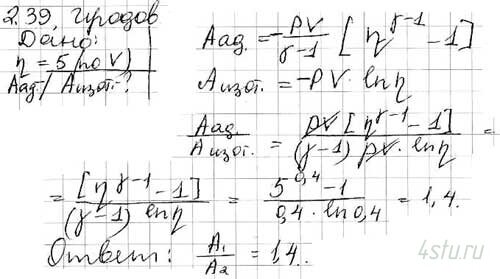 2.39. Чуродов
Дано:
η = 5 (по V)
Aад./Aизот.?
Aад. = -pV/(γ-1) [η^(γ-1) - 1]
Aизот. = -pV · lnη
Aад./Aизот. = pV [η^(γ-1) - 1]/((γ-1) pV · lnη) =
= [η^(γ-1) - 1]/((γ-1) lnη) = (5^0,4 - 1)/(0,4 · ln 0,4) = 1,4.
Ответ: A₁/A₂ = 1,4.
4stu.ru